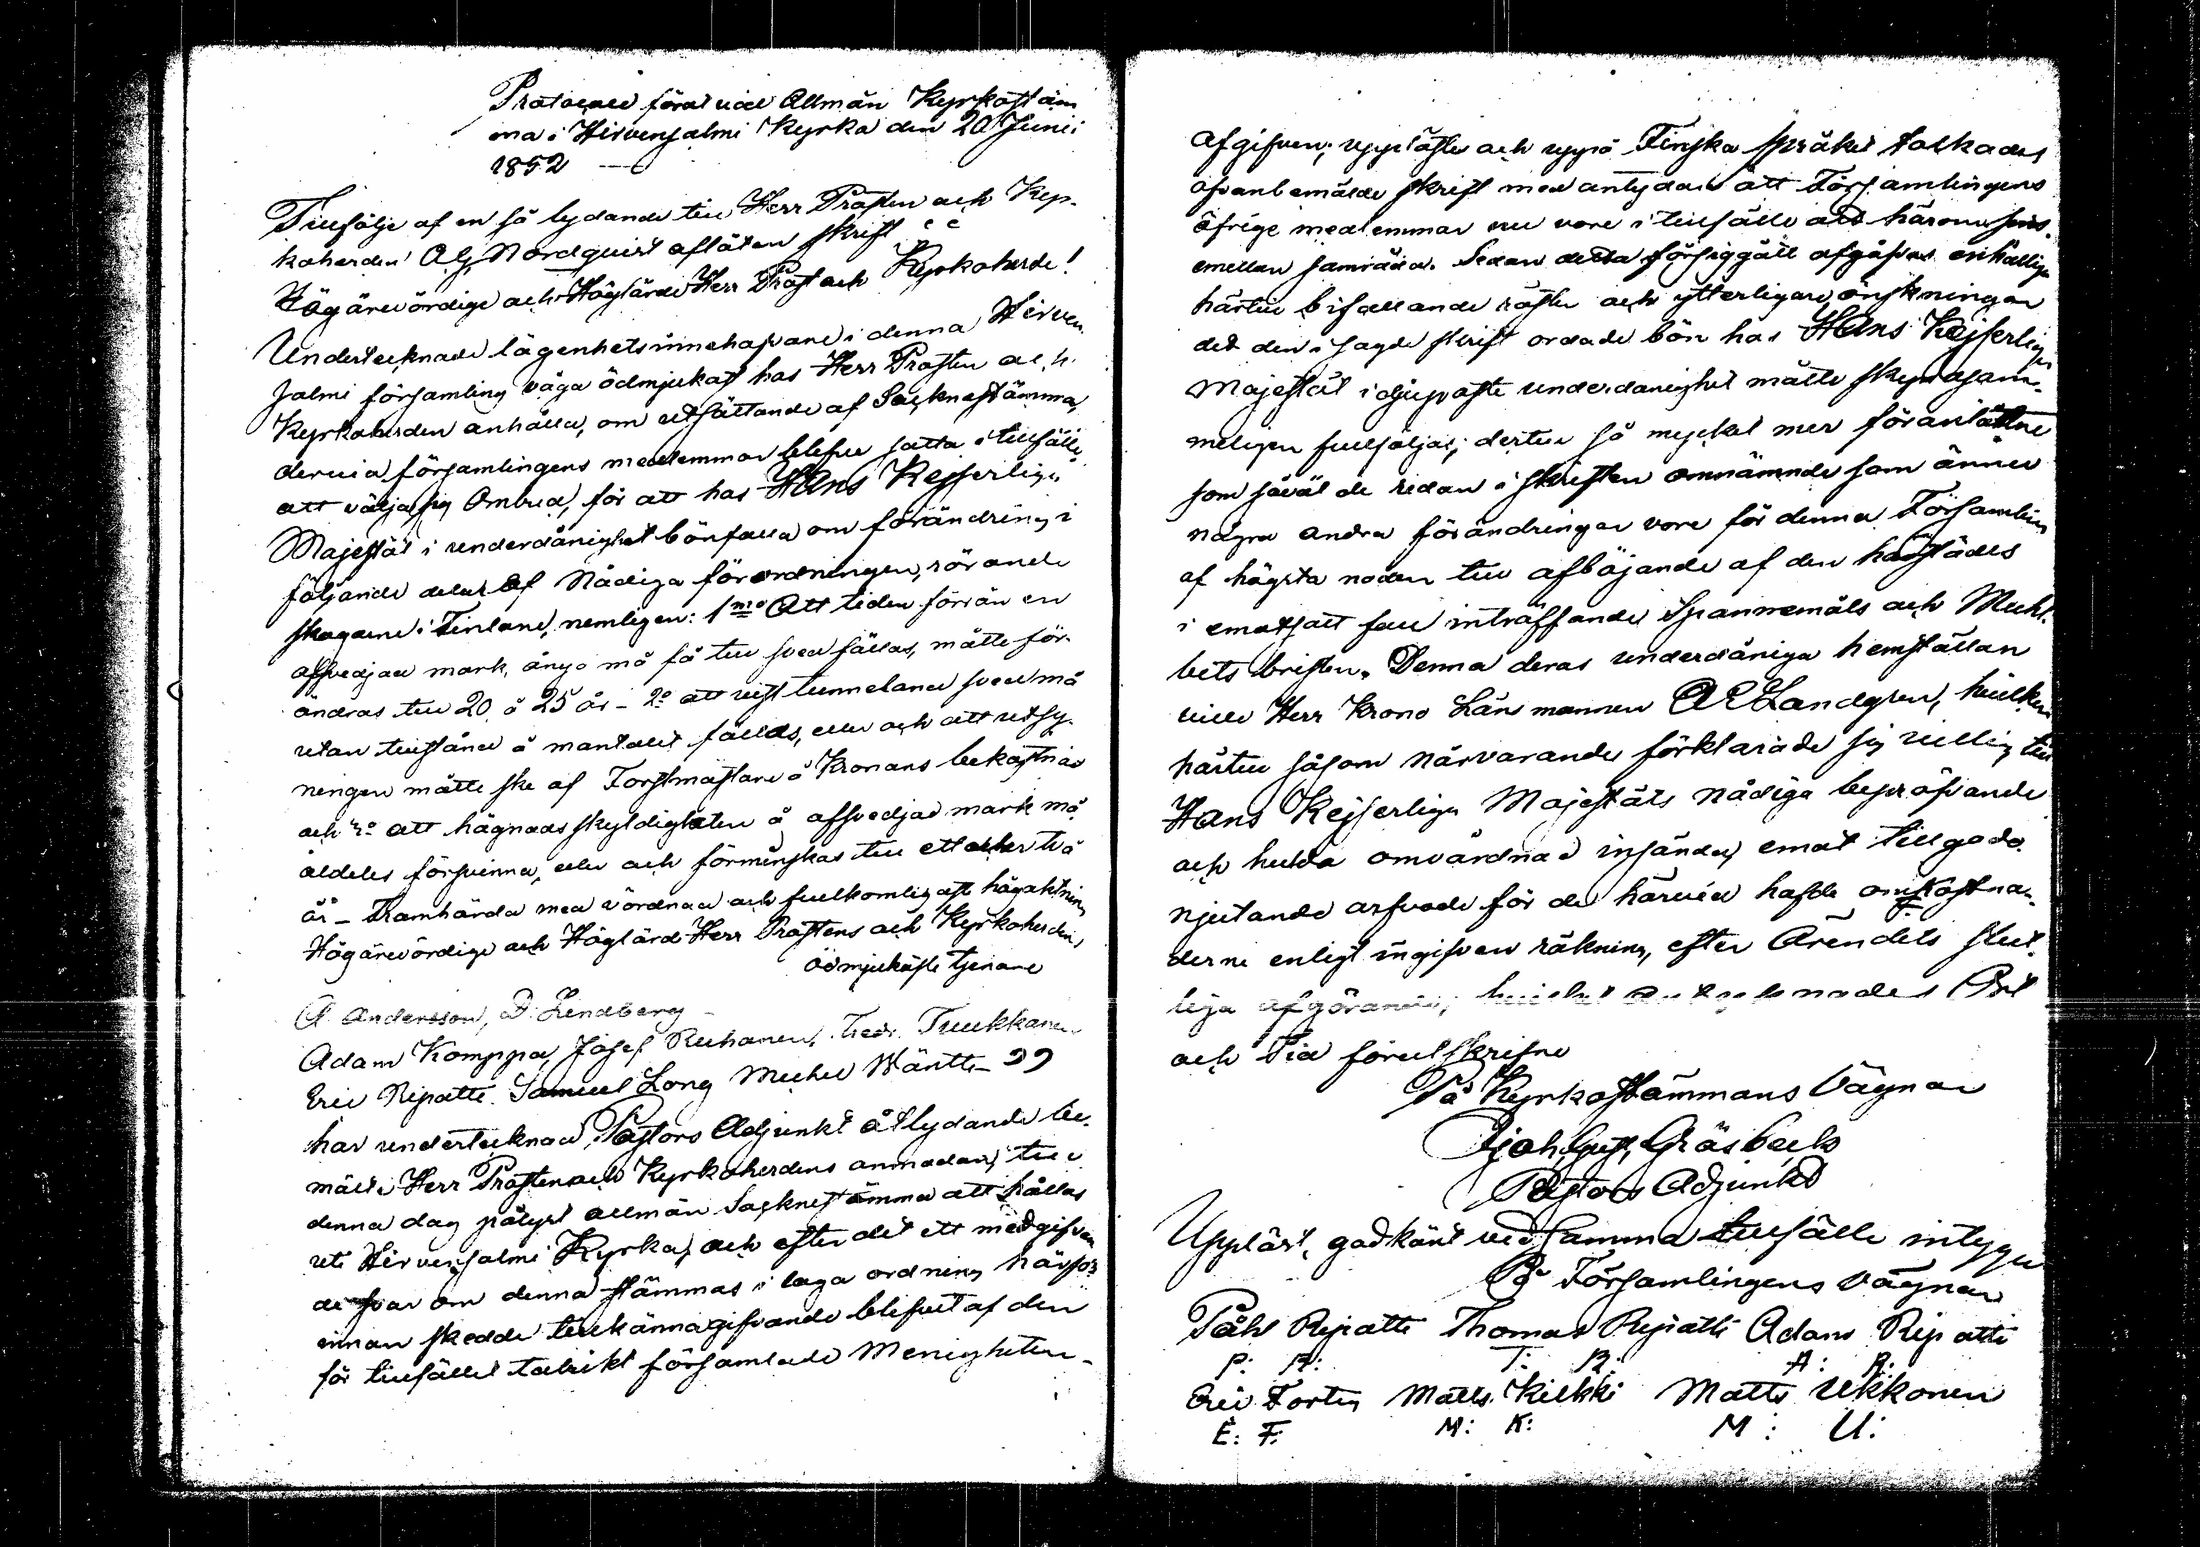 Protocoll fördt vid Allmän Kyrkostäm
ma i Hirvensalmi Kyrka den 20 Junii
1852
Tillfölje af en så lydande till Herr Prosten och Kyr-
koherden A G Nordquist aflåten skrift
Högärevördige och Höglärde Herr Prost och Kyrkoherde!
Undertecknade lägenhetsinnehafvare i denna Hirven
salmi församling våga ödmjukast hos Herr Prosten och
Kyrkoherden anhålla, om utsättande af Sockenstämma,
dervid församlingens medlemmar blefve satta i tillfälle
att välja sig Ombud, för att hos Hans Kejserliga
Majestät i underdånighet bönfalla om förändring i
följande delar af Nådiga förordningen, rörande
skogarne i Finland, nemligen: 1mo Att tiden förrän en
afsvedjad mark, ånyo må få till sved fällas, måtte för-
ändras till 20 à 25 år - 2o att visst tunneland sved må
utan tillstånd å mantalet fällas, eller och att utsy-
ningen måtte ske af Forstmästare å Kronans bekostnad
och 3o att hägnadsskyldigheten å afsvedjad mark må
aldeles försvinna, eller och förminskas till ett eller två
år - Framhärda med vördnad och fullkomligaste högaktning
Högärevördige och Höglärde Herr Prostens och Kyrkoherden,
ödmjukaste tjenare
A Andersson, D. Lindberg
Adam Komppa, Josef Ruhanen, Fredr. Tuukkanen
Eric Ripatti Samuel Long Michel Wäntti
har undertecknad, Pastors Adjunkt åtlydande be-
mälte Herr Prosten och Kyrkoherdens anmodan, till
denna dag pålyst allmän Sockenstämma att hållas
uti Hirvensalmi Kyrka, och efter det ett medgifvan
de svar om denna stämmas i laga ordning härför
innan skedde tillkännagifvande blifvit af den
för tillfället talrikt församlade Menigheten
afgifven; upplästes och uppå Finska språket tolkades
ofvanbemälde skrift med antydan att Församlingens
öfrige medlemmar nu vore i tillfälle att härom sins
emellan samråda. Sedan detta försiggått afgåfvos enhällige
härtill bifallande röster och ytterligare önskningar
det den i sagde skrift ordade bön hos Hans Kejserliga
Majestät i djupaste underdånighet måtte skyndsam-
meligen fullföljas; dertill så mycket mer föranlåtne
som såväl de redan i skriften omnämnde som ännu
några andra förändringar vore för denna Församling
af högsta nöden till afböjande af den härstädes
i emotsatt fall inträffande Spannemåls och Mulbets
bristen. Denna deras underdåniga hemställan
ville Herr Krono Länsmannen A E Landgren, hvilken
härtill såsom närvarande förklarade sig villig till
Hans Kejserliga Majestäts nådiga bepröfvande
och hulda omvårdnad insända, emot tillgodo
njutande arfvode för de härvid hafde omkostna-
derne enligt ingifven räkning, efter Ärendets slut
liga afgörande; hvilket antecknades Ort
och Tid förutskrifne
På Kyrkostämmans Vägnar
Joh. Gust. Gråsbeck
Pastors Adjunkt
Uppläst, godkänt vid samma tillfälle intyga
På Församlingens vägnar
Påhl Ripatti Thomas Ripatti Adam Ripatti
P: R: T: R: A: R:
Eric Fortin Matts Kilkki Matts Ukkonen
E: F: M: K: M: U: